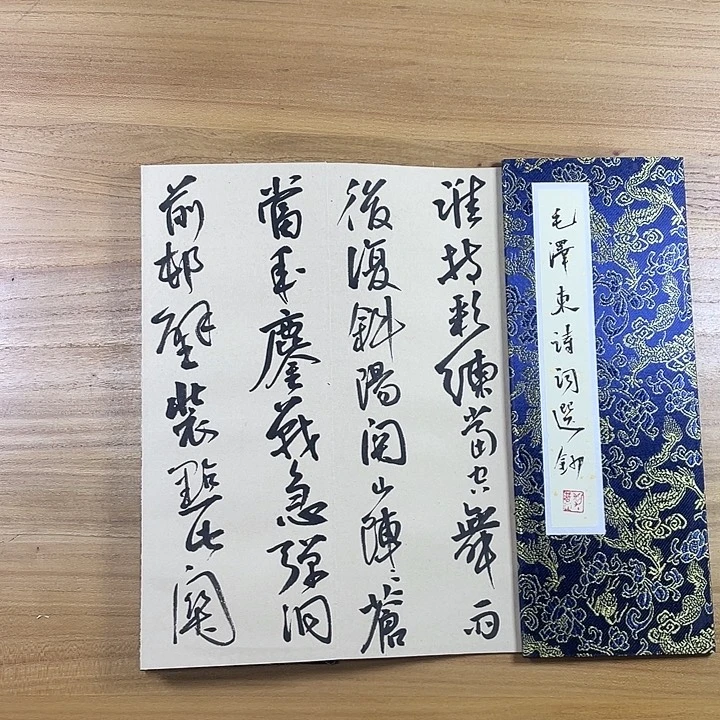 毛澤東詩詞選鈔
誰持彩練當空舞雨
後復斜陽関山陣〻蒼
當年鏖戰急彈洞
前邨壁裝點此關